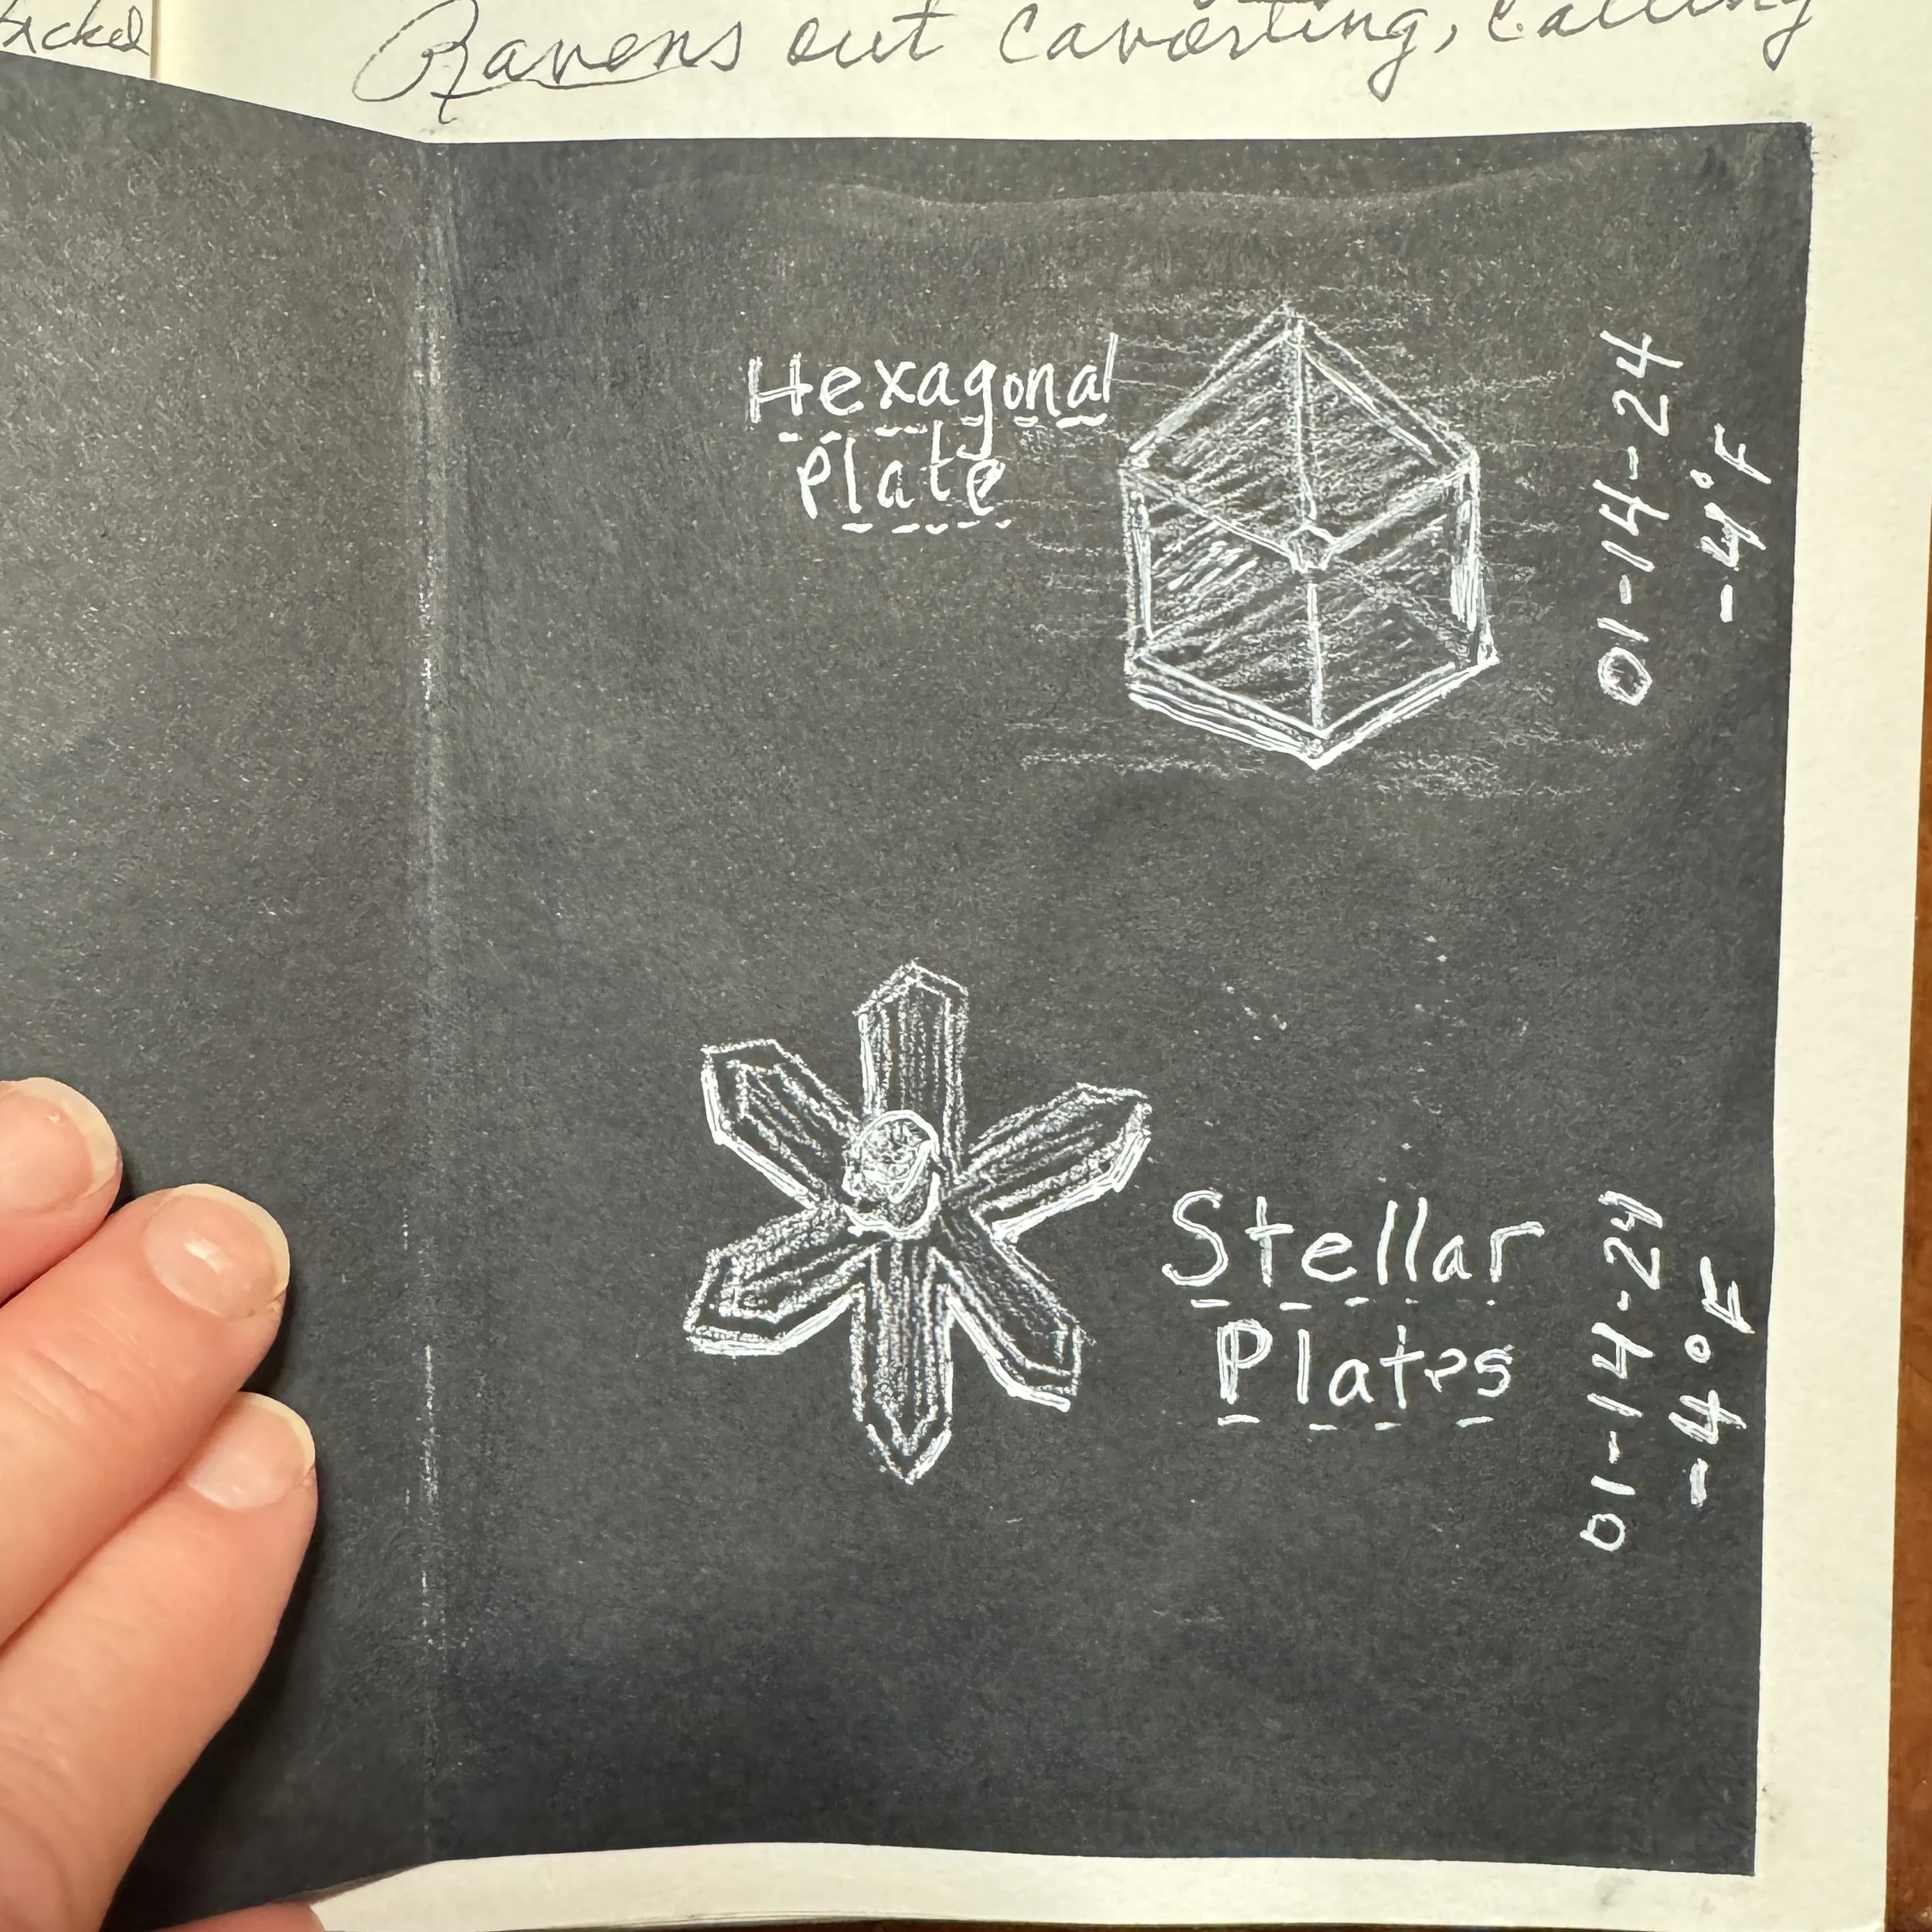 Ravens out cavorting, calling
Hexagonal
Plate
01-14-24
-4°F
Stellar
Plates
01-14-24
-4°F